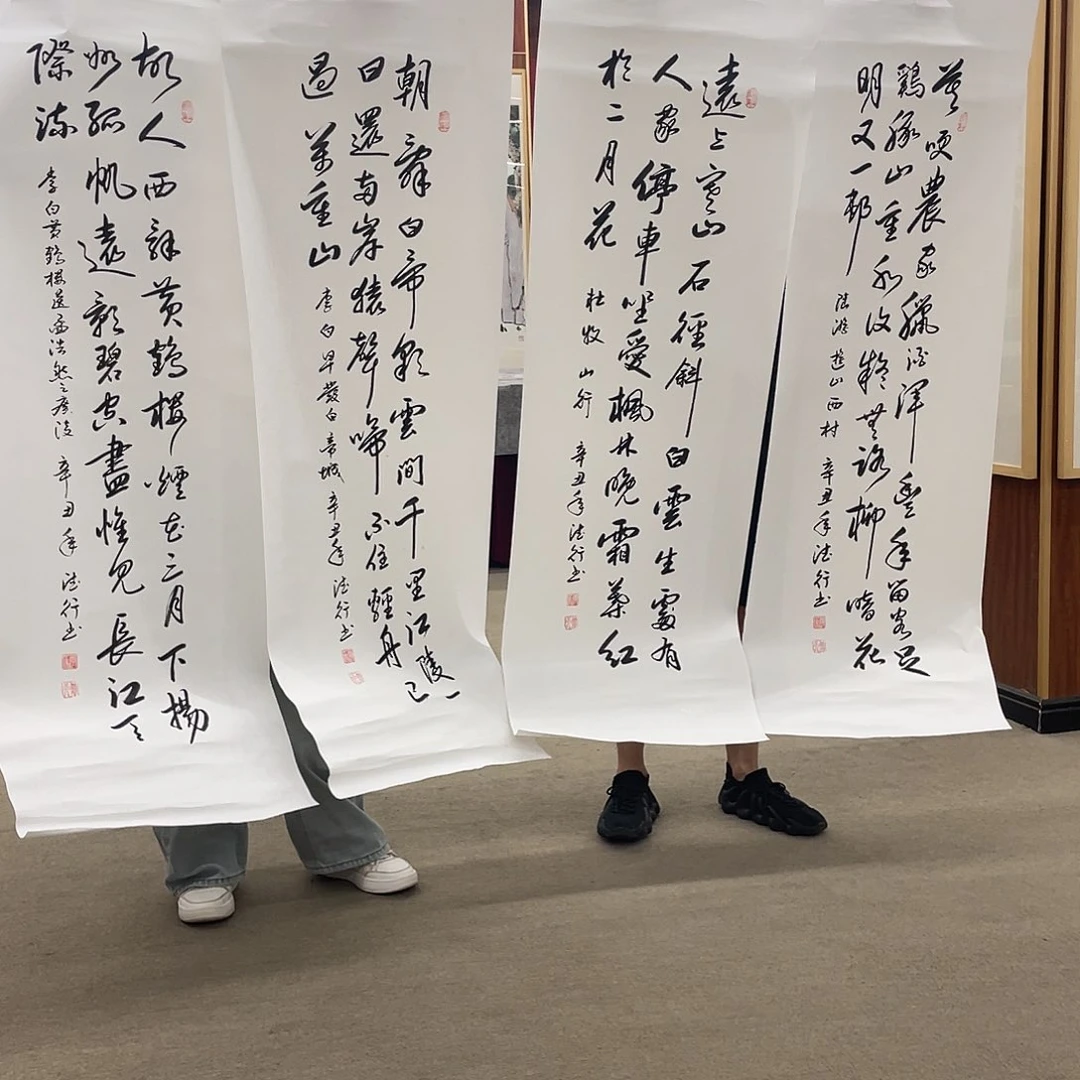 莫咲農家臘酒渾豐年留客足
雞豚山重水復疑無路柳暗花
明又一邨
陸游 遊山西村 辛丑年德行书
遠上寒山石徑斜白雲生處有
人家停車坐愛楓林晚霜葉紅
於二月花
杜牧 山行 辛丑年德行书
朝辭白帝彩雲間千里江陵一
日還兩岸猿聲啼不住輕舟已
過萬重山
李白早發白帝城 辛丑年德行书
故人西辭黄鶴樓煙花三月下揚
州孤帆遠影碧空盡惟見長江天
際流
李白黄鶴樓送孟浩然之廣陵 辛丑年 德行书